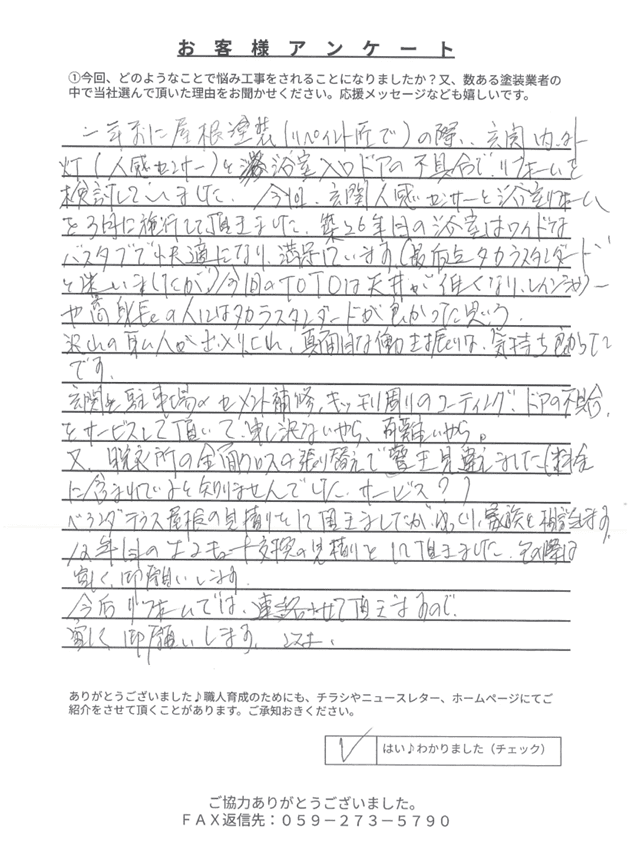 お客様アンケート
①今回、どのようなことで悩み工事をされることになりましたか？又、数ある塗装業者の
中で当社選んで頂いた理由をお聞かせください。応援メッセージなども嬉しいです。
二年前に屋根塗装(リペイント匠で)の際、玄関内外
灯(人感センサー)と浴室入口ドアの不具合で、リフォームを
検討していました。今回、玄関人感センサーと浴室リフォーム
を3月に施行して頂きました。築26年目の浴室はワイドな
バスタブで快適になり、満足しています(最后迄タカラスタンダード
と迷いましたが)今回のTOTOは天井が低くなり、レインシャワー
や高身長の人にはタカラスタンダードが良かったと思う。
沢山の職人が出入りされ、真面目な働き振りは、気持ち良かった
です。
玄関と駐車場のセメント補修、キッチン周りのコーティング、ドアの不具合
をサービスして頂いて、実に決ないやら、有難いやら。
又、脱衣所の全面クロスの張り替えで 見違えました(料金
に含まれていると知りませんでした。サービス？)
ベランダテラス屋根の見積りをして頂きましたが、ゆっくり、家族と相談します。
年目のエコキュート交換の見積りをして頂きました。その際は
宜しく御願いします。
今后リフォームでは、連絡させて頂きますので、
宜しく御願いします。以上、
ありがとうございました♪職人育成のためにも、チラシやニュースレター、ホームページにてご
紹介をさせて頂くことがあります。ご承知おきください。
はい♪わかりました（チェック）
ご協力ありがとうございました。
ＦＡＸ返信先：０５９－２７３－５７９０